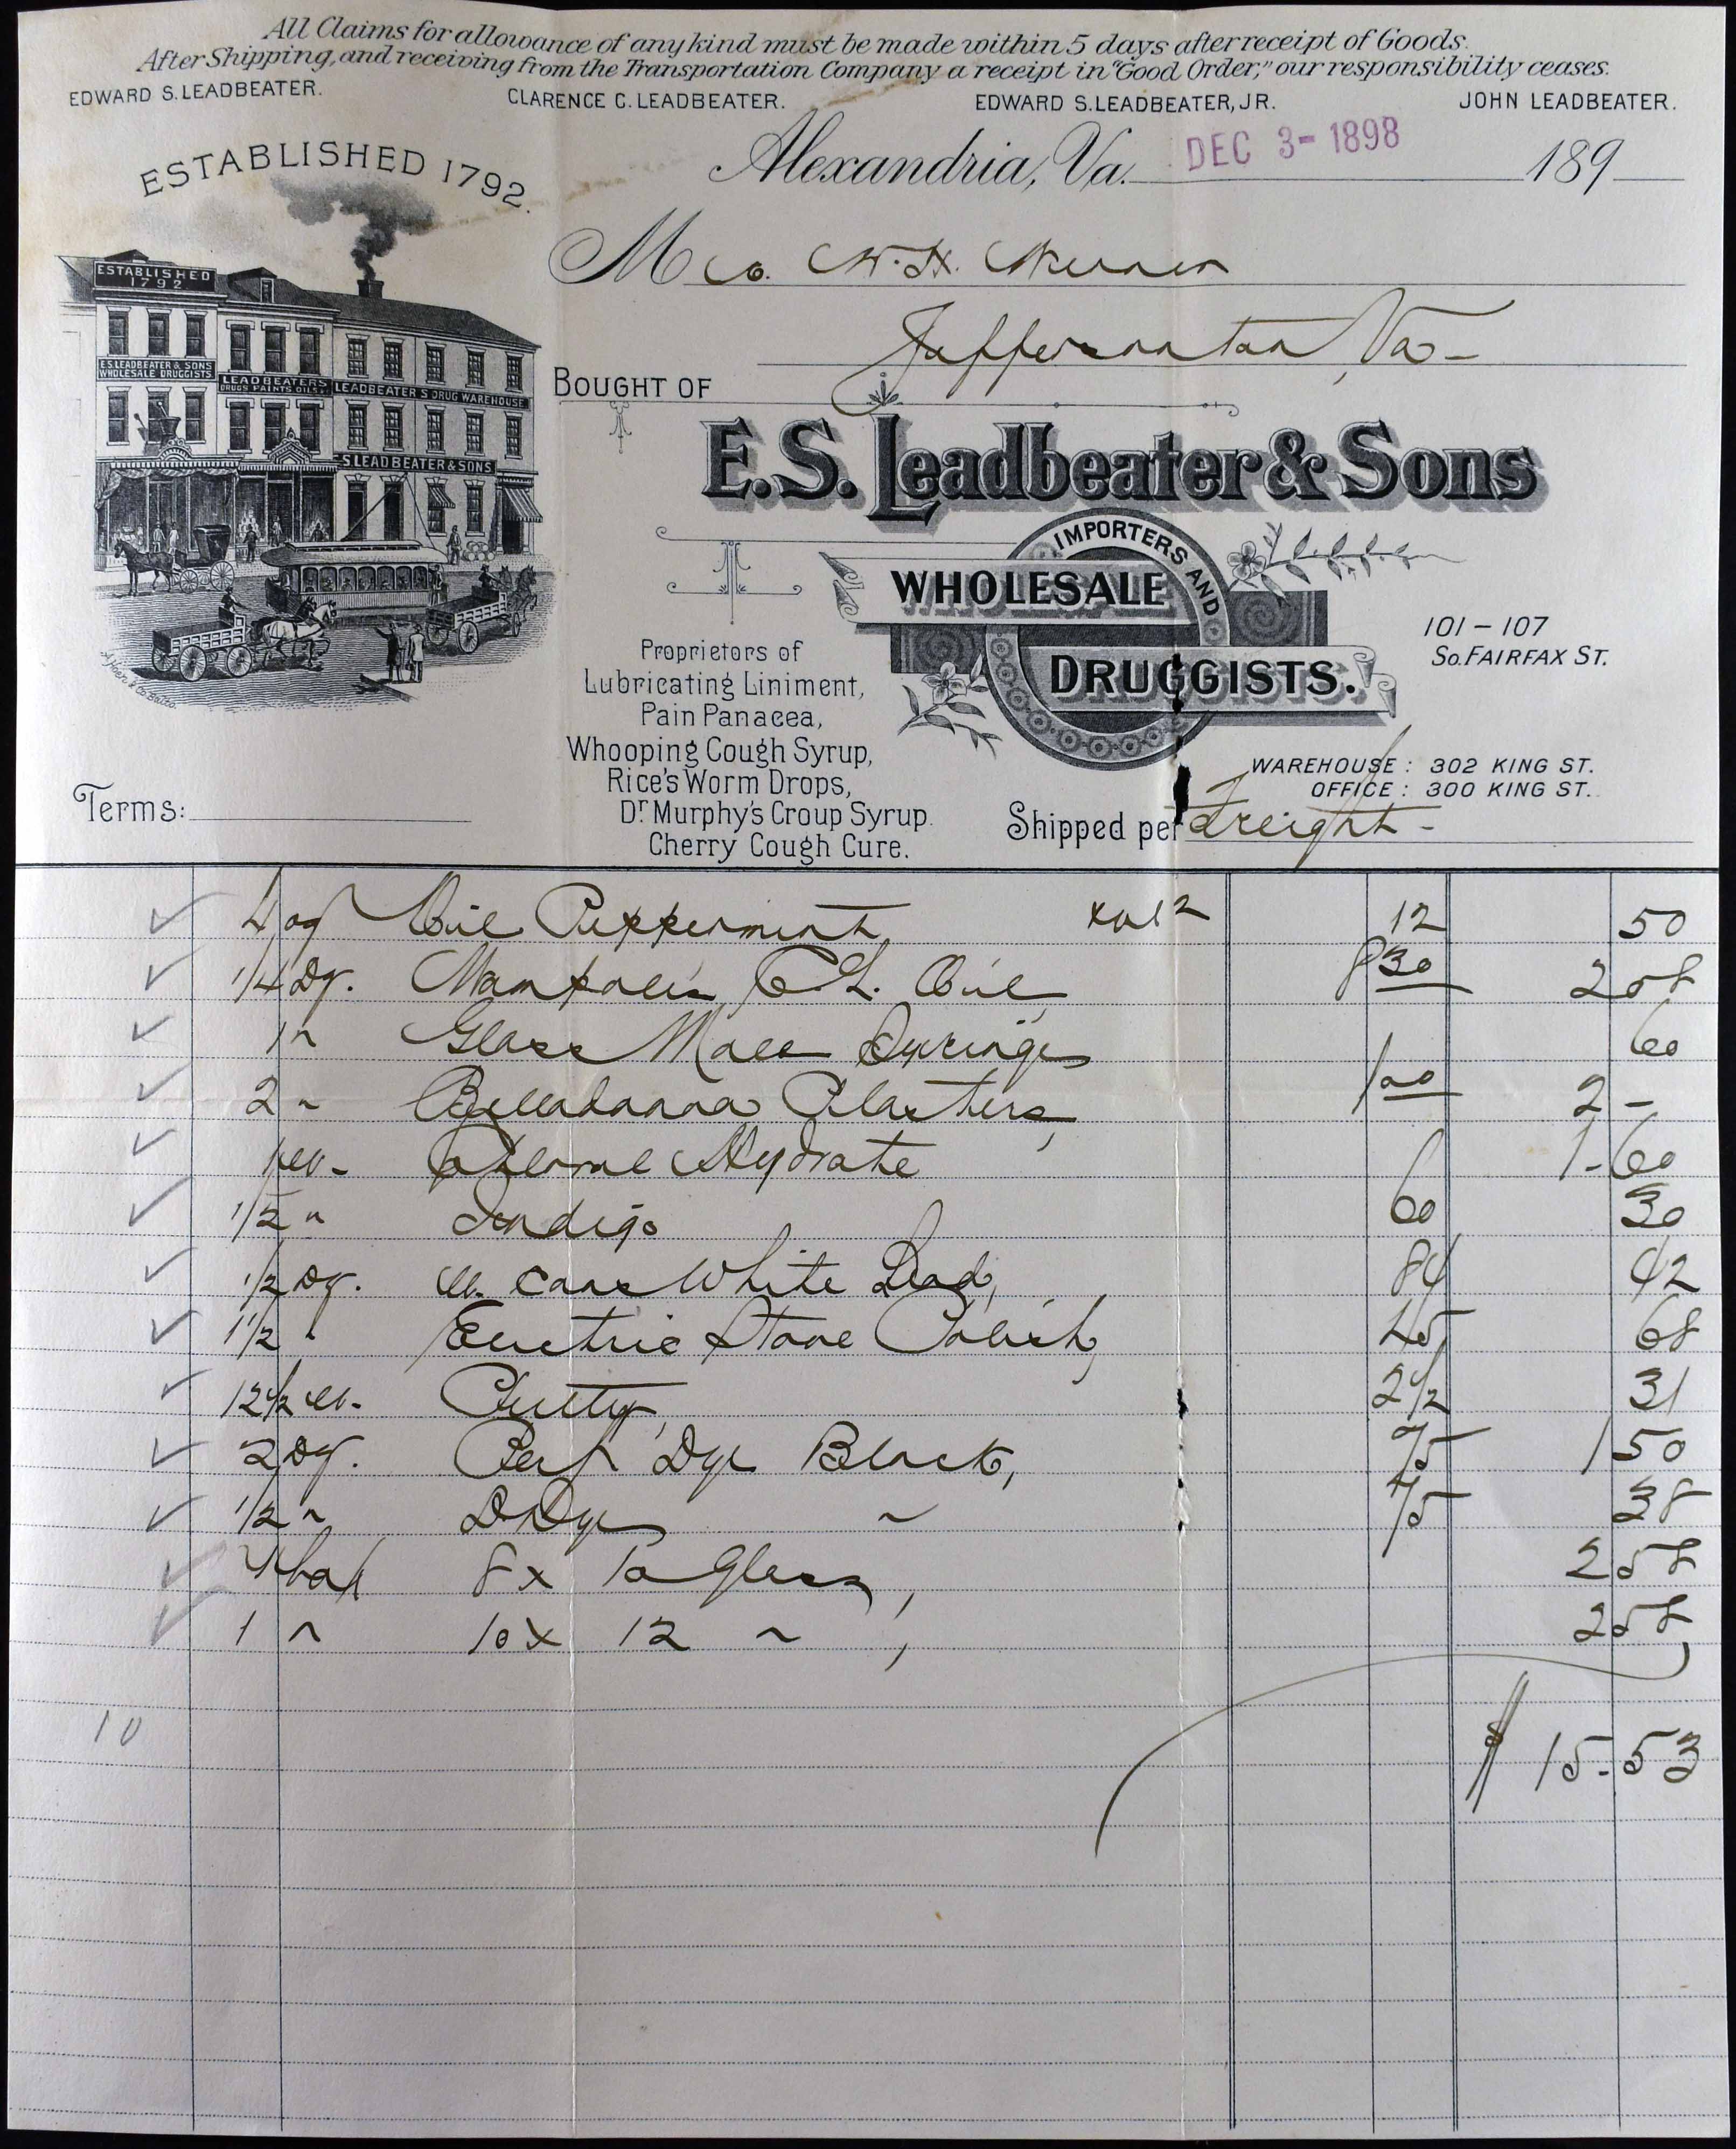 All Claims for allowance of any kind must be made within 5 days after receipt of Goods.
After Shipping, and receiving from the Transportation Company a receipt in "Good Order," our responsibility ceases.
EDWARD S. LEADBEATER. CLARENCE C. LEADBEATER. EDWARD S. LEADBEATER, JR. JOHN LEADBEATER.
ESTABLISHED 1792.
Alexandria, Va. DEC 3- 1898 189
M W. H.
Jeffersonton, Va-
ESTABLISHED
1792
E.S. LEADBEATER & SONS
WHOLESALE DRUGGISTS
LEADBEATERS
DRUGS PAINTS OILS
LEADBEATER'S DRUG WAREHOUSE
E.S LEADBEATER & SONS
BOUGHT OF
E.S. Leadbeater & Sons
IMPORTERS AND
WHOLESALE
DRUGGISTS.
101 - 107
So. FAIRFAX ST.
Proprietors of
Lubricating Liniment,
Pain Panacea,
Whooping Cough Syrup,
Rice's Worm Drops,
Dr Murphy's Croup Syrup.
Cherry Cough Cure.
WAREHOUSE: 302 KING ST.
OFFICE: 300 KING ST.
Terms:
Shipped per Freight-
4 oz Oil Peppermint 12 50
1/4 Dz. C. L. Oil 8 30 2 08
1 " Glass Male Syringes 60
2 " Belladonna Plasters, 1 00 2 -
1 lb- Chloral Hydrate 1-60
1/2 " Indigo 60 30
1/2 Dz. lb. Cans White Lead, 84 42
1 1/2 " Electric Stove Polish, 45 68
12 1/2 lb. Putty, 2 1/2 31
2 Dz. Dye Black, 75 1 50
1/2 " D Dye " 75 38
1 box 8 x 10 Glass, 2 58
1 " 10 x 12 " , 2 58
10
$ 15-53